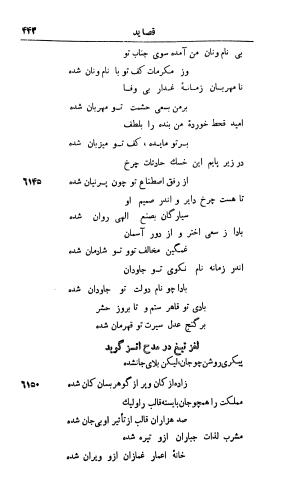 قصاید ۴۴۳
بی نام ونان من آمده سوی جناب تو
وز مکرمات کف تو با نام ونان شده
نامهربان زمانهٔ غدار بی وفا
برمن بسعی حشمت تو مهربان شده
امید قحط خوردهٔ من بنده را بلطف
برتو مایده ، کف تو میزبان شده
در زیر پایم این خسك حادثات چرخ
از رفق اصطناع تو چون پرنیان شده ۶۱۴۵
تا هست چرخ دایر و اندر صمیم او
سیارگان بصنع الهی روان شده
بادا ز سعی اختر و از دور آسمان
غمگین مخالف تو و تو شادمان شده
اندر زمانه نام نکوی تو جاودان
بادا چو نام دولت تو جاودان شده
بادی تو قاهر ستم و تا بروز حشر
برگنج عدل سیرت تو قهرمان شده
لغز تیغ در مدح اتسز گوید
پیکری روشن چو جان، لیکن بلای جانشده
زاده از کان و برا ز گوهر بسان کان شده ۶۱۵۰
مملکت را همچو جان بایسته قالب را ولیك
صد هزاران قالب از تأثیر او بی جان شده
مشرب لذات جباران ازو تیره شده
خانهٔ اعمار غمازان ازو ویران شده